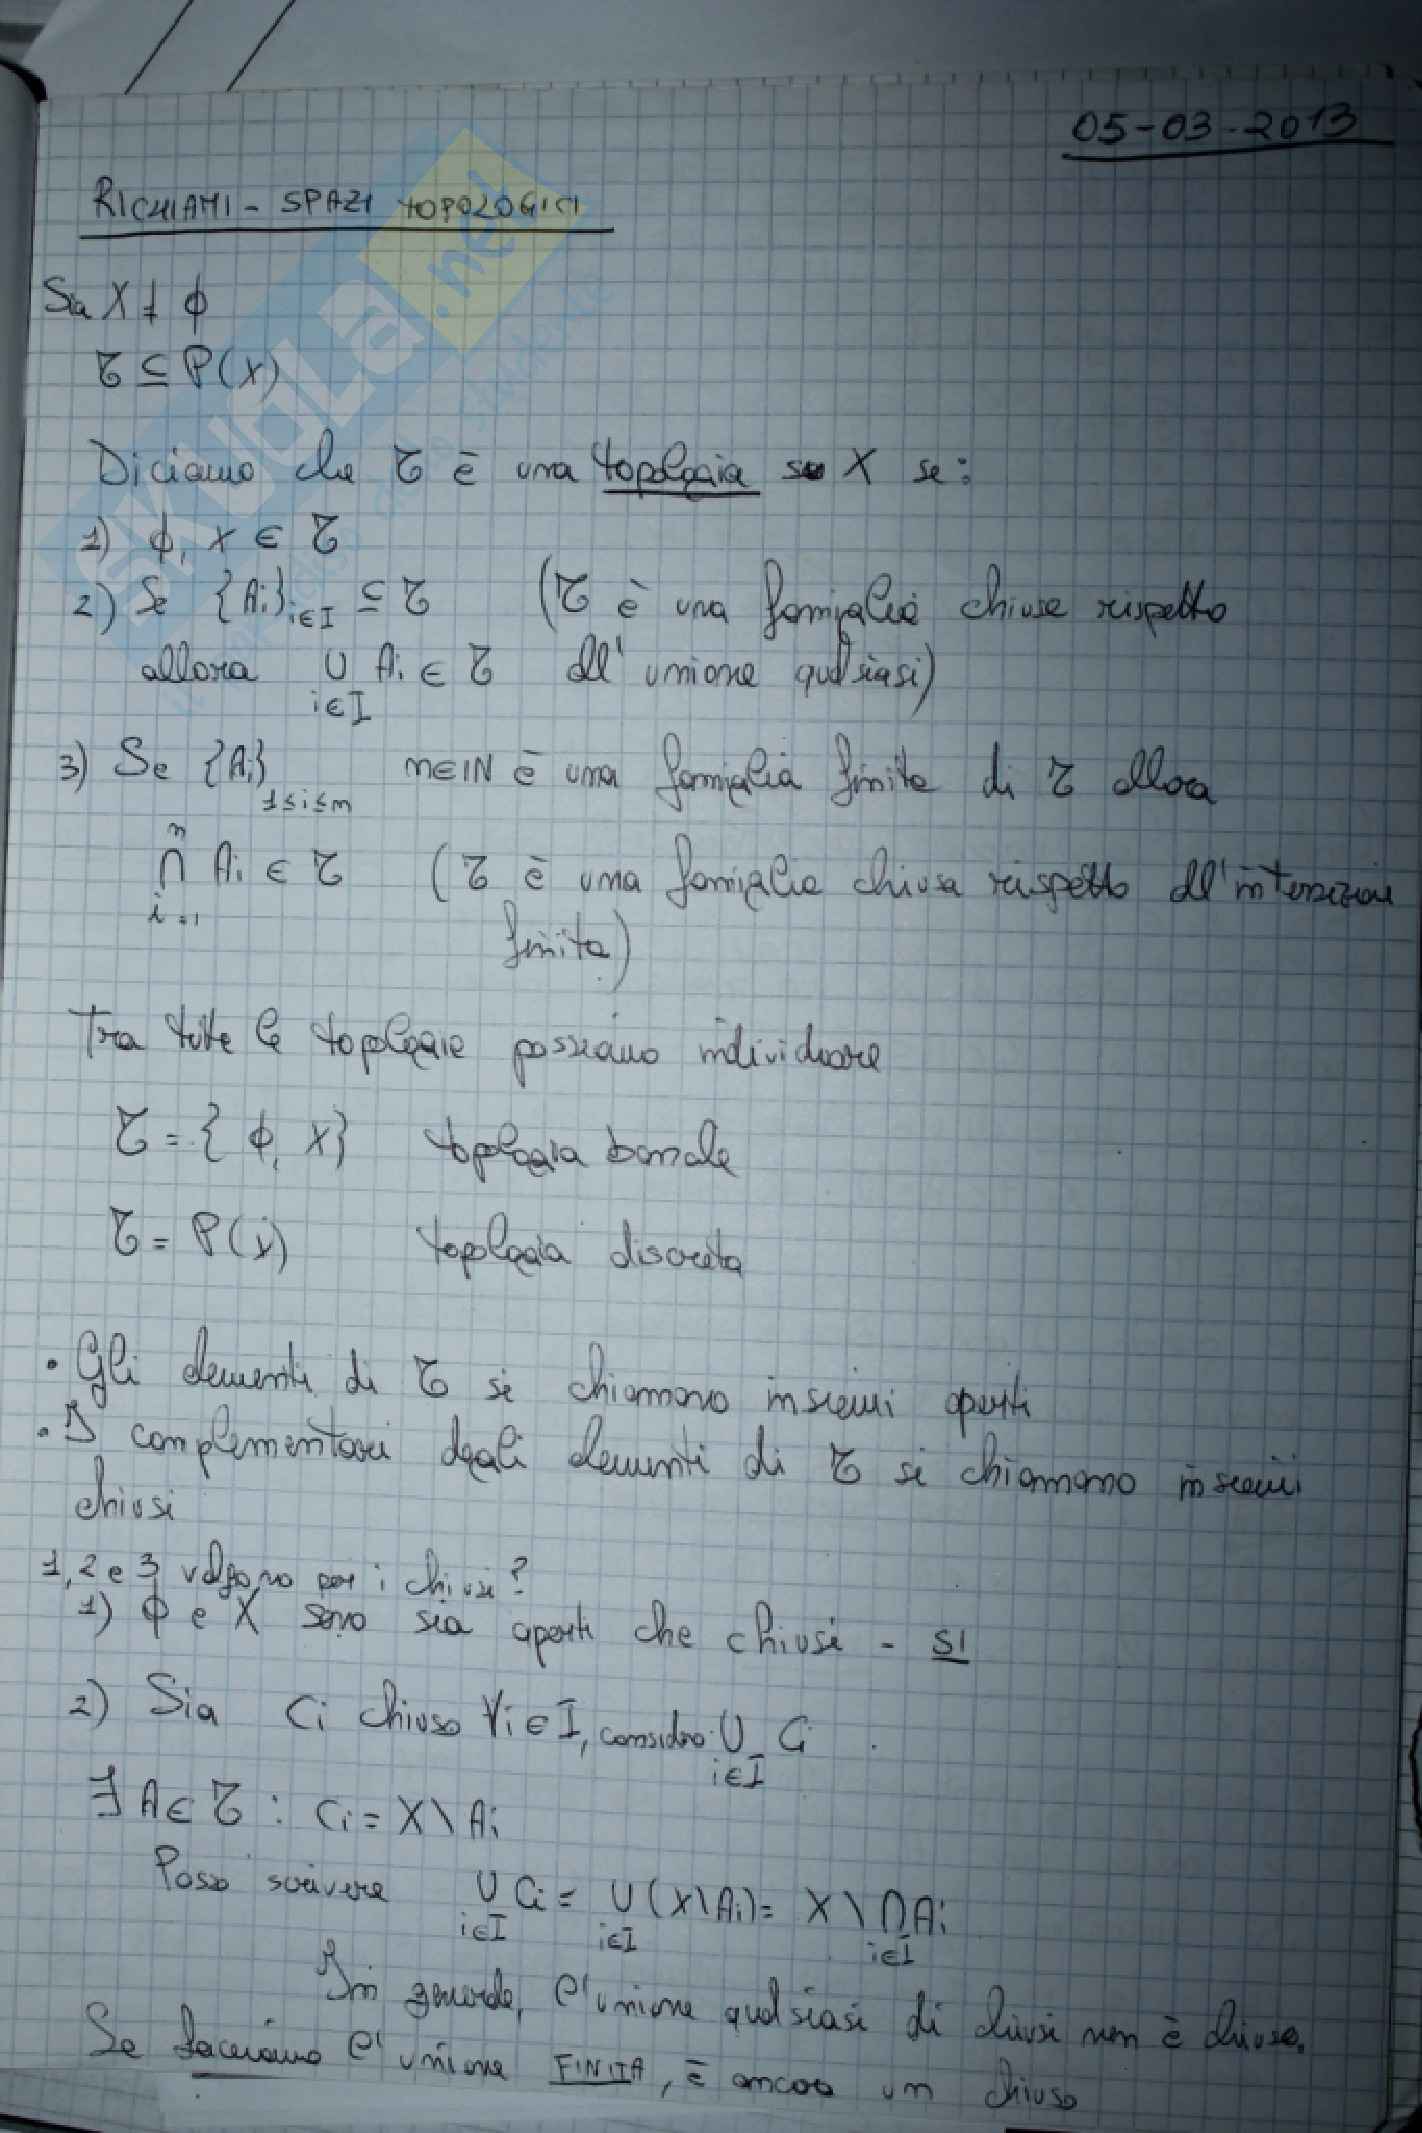 05-03-2013
RICHIAMI - SPAZI TOPOLOGICI
Sia X ≠ ϕ
τ ⊆ P(X)
Diciamo che τ è una topologia su X se:
1) ϕ, X ∈ τ
2) Se {Ai}i∈I ⊆ τ (τ è una famiglia chiusa rispetto
allora ∪ Ai ∈ τ all'unione qualsiasi)
i∈I
3) Se {Ai} n∈IN è una famiglia finita di τ allora
1≤i≤n
n
∩ Ai ∈ τ (τ è una famiglia chiusa rispetto all'intersezione
i=1
finita)
Tra tutte le topologie possiamo individuare
τ = {ϕ, X} topologia banale
τ = P(X) topologia discreta
• Gli elementi di τ si chiamano insiemi aperti
• I complementari degli elementi di τ si chiamano insiemi
chiusi
1, 2 e 3 valgono per i chiusi?
1) ϕ e X sono sia aperti che chiusi - SI
2) Sia Ci chiuso ∀i∈I, considero ∪ Ci
i∈I
∃ A∈τ : Ci = X\Ai
Posso scrivere ∪ Ci = ∪ (X\Ai) = X \ ∩ Ai
i∈I i∈I i∈I
In generale, l'unione qualsiasi di chiusi non è chiusa.
Se facciamo l'unione FINITA, è ancora un chiuso
SKUOLA.net